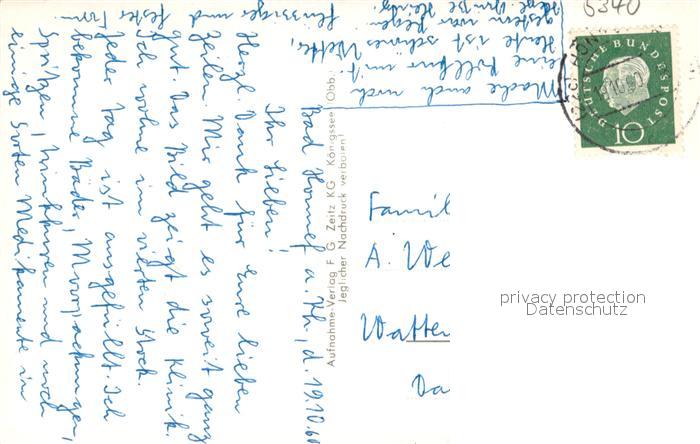 Bad Honnef a. Rh., d. 19.10.60
Ihr Lieben!
Herzl. Dank für Eure lieben
Zeilen. Mir geht es soweit ganz
gut. Das Bild zeigt die Klinik.
Ich wohne im vierten Stock.
Jeder Tag ist ausgefüllt. Ich
bekomme Bäder, Moorpackungen,
Spritzen, Trinkkuren und noch
einige Sorten Medikamente in
flüssiger und fester Form.
Mache auch noch
eine Rollkur mit.
Heute ist schönes Wetter,
gestern war Regen.
Herzl. Grüße
Aufnahme-Verlag F G Zeitz KG Königssee (Obb.
Jeglicher Nachdruck verboten!
5340
DEUTSCHE BUNDESPOST
10
Famil
A. We
Watten
Da
privacy protection
Datenschutz